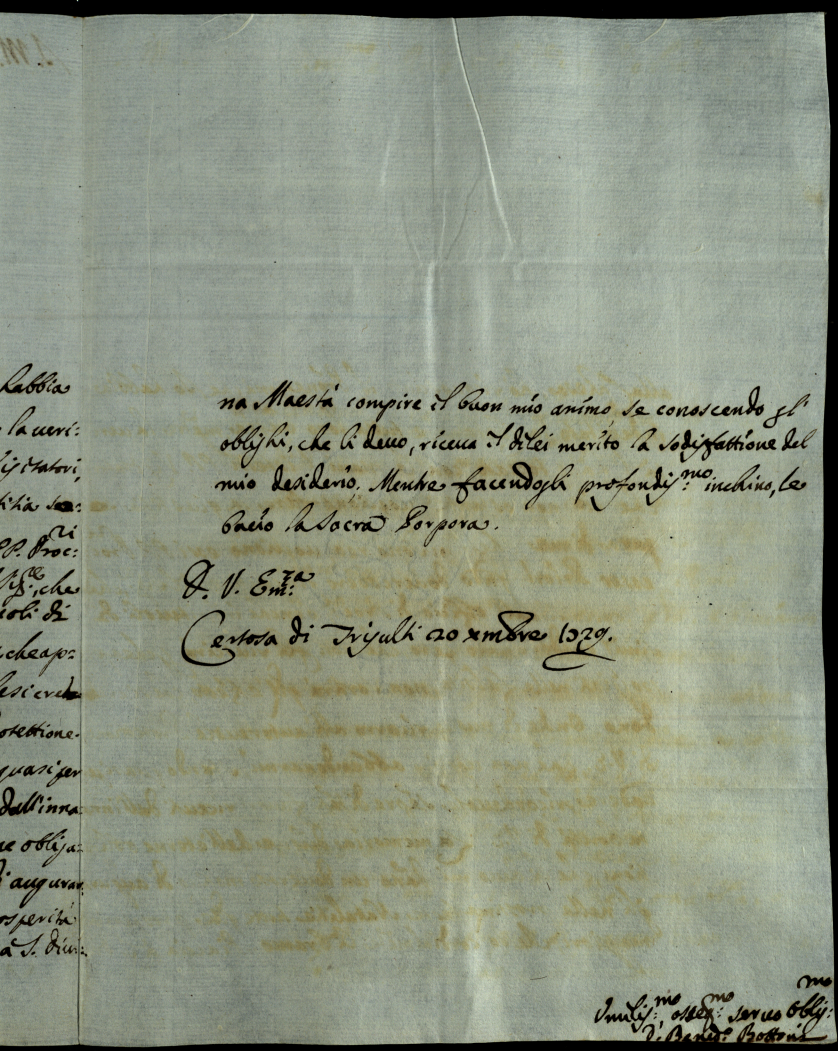 habbia
la veri:
sigitatori,
titia se:
PP. Proc:ri
che
coli di
che ap:
otettione
quasi per
dall'inna:
ne obliga:
d'augurar
osperità
a S. divi:
na Maestà compire il buon mio animo, se conoscendo gl'
oblighi, che li devo, riceva il di lei merito la sodisfattione del
mio desiderio. Mentre facendogli profondiss:mo inchino, le
bacio la Sacra Porpora.
D. V. Em:za
Certosa di Trisulti 20 Xmbre 1729.
Umilis:mo osseq:mo servo oblig:mo
D. Bened:o Bottini